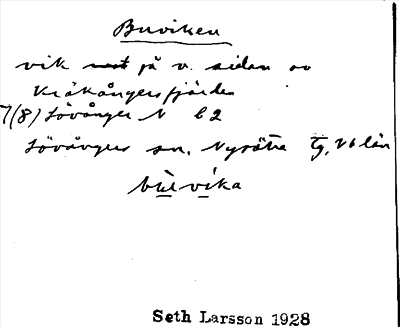 Buviken
vik på v. sidan av
Kråkångersfjärden
7(8) Lövånger N b 2
Lövångers sn. Nysätra tg, Vb län
bùvika
Seth Larsson 1928